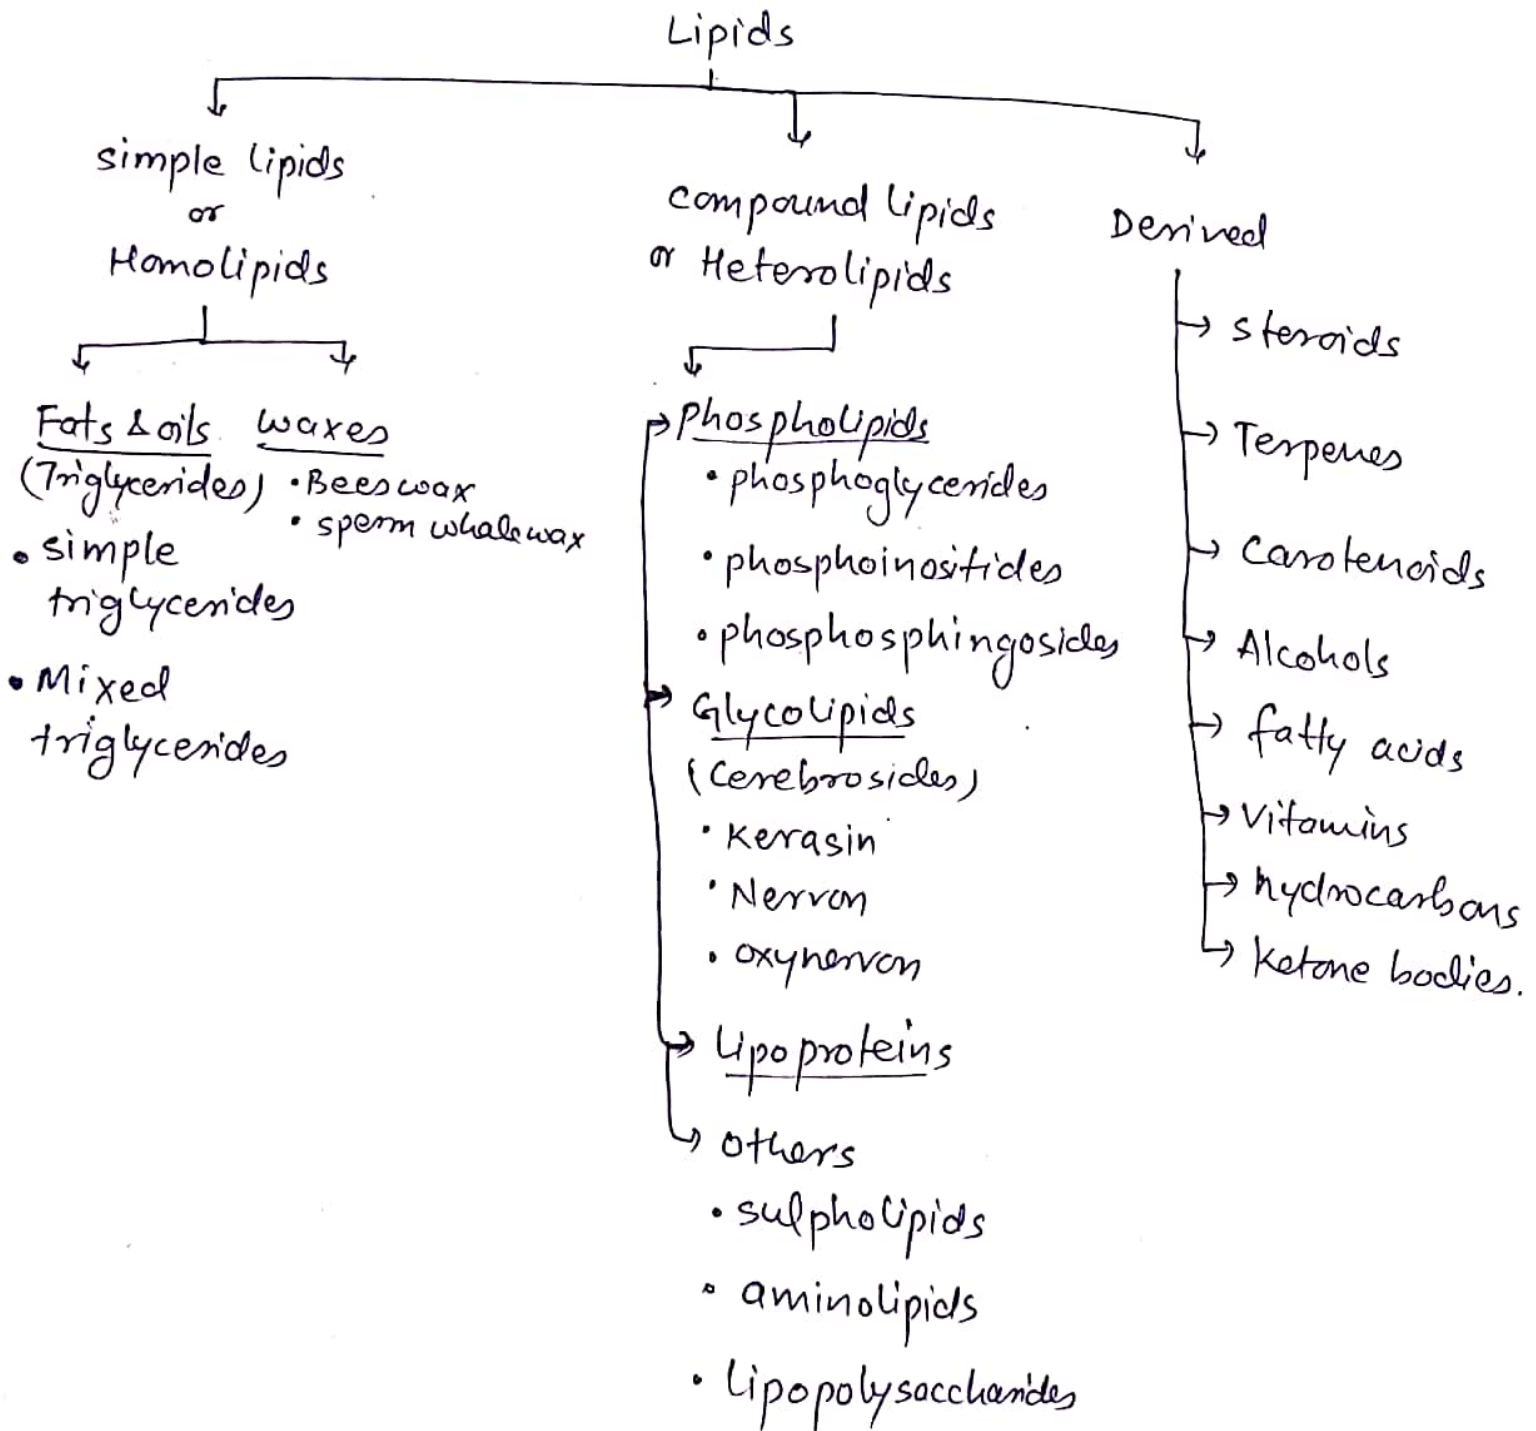 Lipids
simple lipids
or
Homolipids
Fats & oils
(Triglycerides)
• simple
triglycerides
• Mixed
triglycerides
waxes
• Beeswax
• sperm whale wax
compound lipids
or Heterolipids
Phospholipids
• phosphoglycerides
• phosphoinositides
• phosphosphingosides
Glycolipids
(Cerebrosides)
• Kerasin
• Nervon
• oxynervon
Lipoproteins
others
• sulpholipids
• aminolipids
• Lipopolysaccharides
Derived
steroids
Terpenes
Carotenoids
Alcohols
fatty acids
Vitamins
hydrocarbons
Ketone bodies.